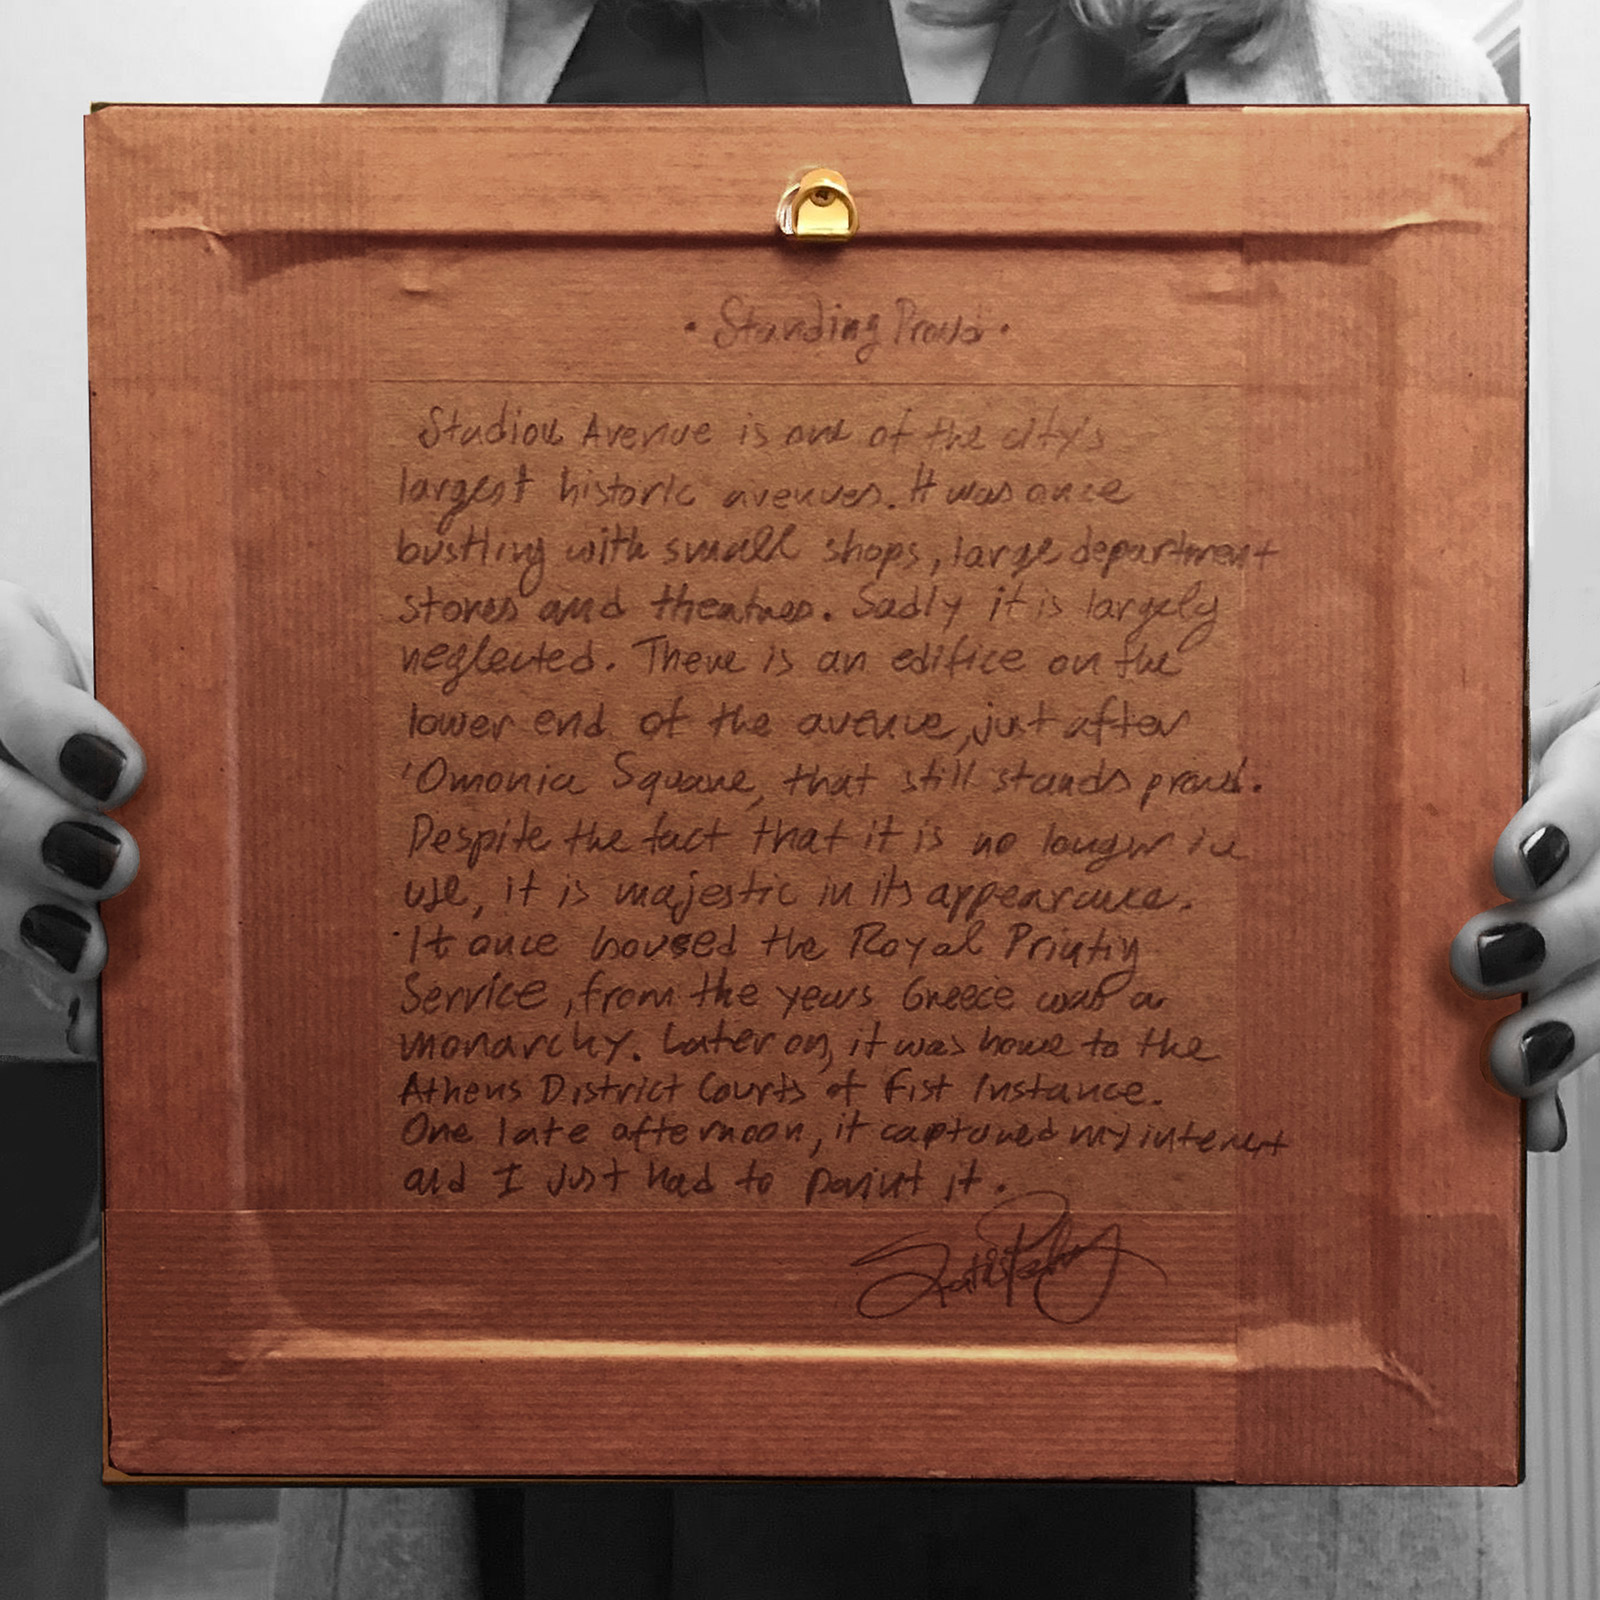 · Standing Proud ·
Stadiou Avenue is one of the city's
largest historic avenues. It was once
bustling with small shops, large department
stores and theatres. Sadly it is largely
neglected. There is an edifice on the
lower end of the avenue, just after
'Omonia Square, that still stands proud.
Despite the fact that it is no longer in
use, it is majestic in its appearance.
It once housed the Royal Printing
Service, from the years Greece was a
monarchy. Later on, it was home to the
Athens District Courts of Fist Instance.
One late afternoon, it captured my interest
and I just had to paint it.